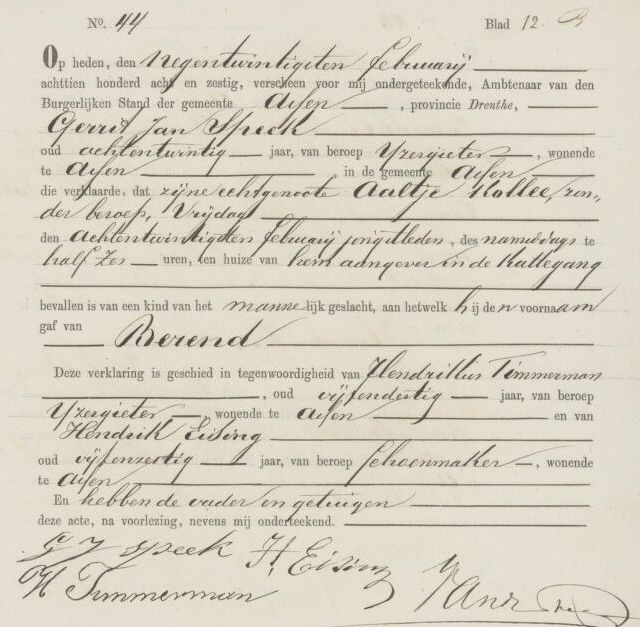 No. 44 Blad 12.
Op heden, den negentwintigsten februarij
achttien honderd acht en zestig, verscheen voor mij ondergeteekende, Ambtenaar van den
Burgerlijken Stand der gemeente Assen, provincie Drenthe,
Gerrit Jan Speek
oud achtentwintig jaar, van beroep Yzergieter, wonende
te Assen in de gemeente Assen
die verklaarde, dat zijne echtgenoote Aaltje Kollee, zon„
der beroep, Vrijdag
den achtentwintigsten februarij jongstleden, des namiddags te
half zes uren, ten huize van hem aangever in de Kattegang
bevallen is van een kind van het mannelijk geslacht, aan hetwelk hij den voornaam
gaf van Berend
Deze verklaring is geschied in tegenwoordigheid van Hendrikus Timmerman
, oud vijfendertig jaar, van beroep
Yzergieter, wonende te Assen en van
Hendrik Eising
oud vijfenzestig jaar, van beroep schoenmaker, wonende
te Assen
En hebben de vader en getuigen
deze acte, na voorlezing, nevens mij onderteekend.
G J Speek H. Eising
H Timmerman